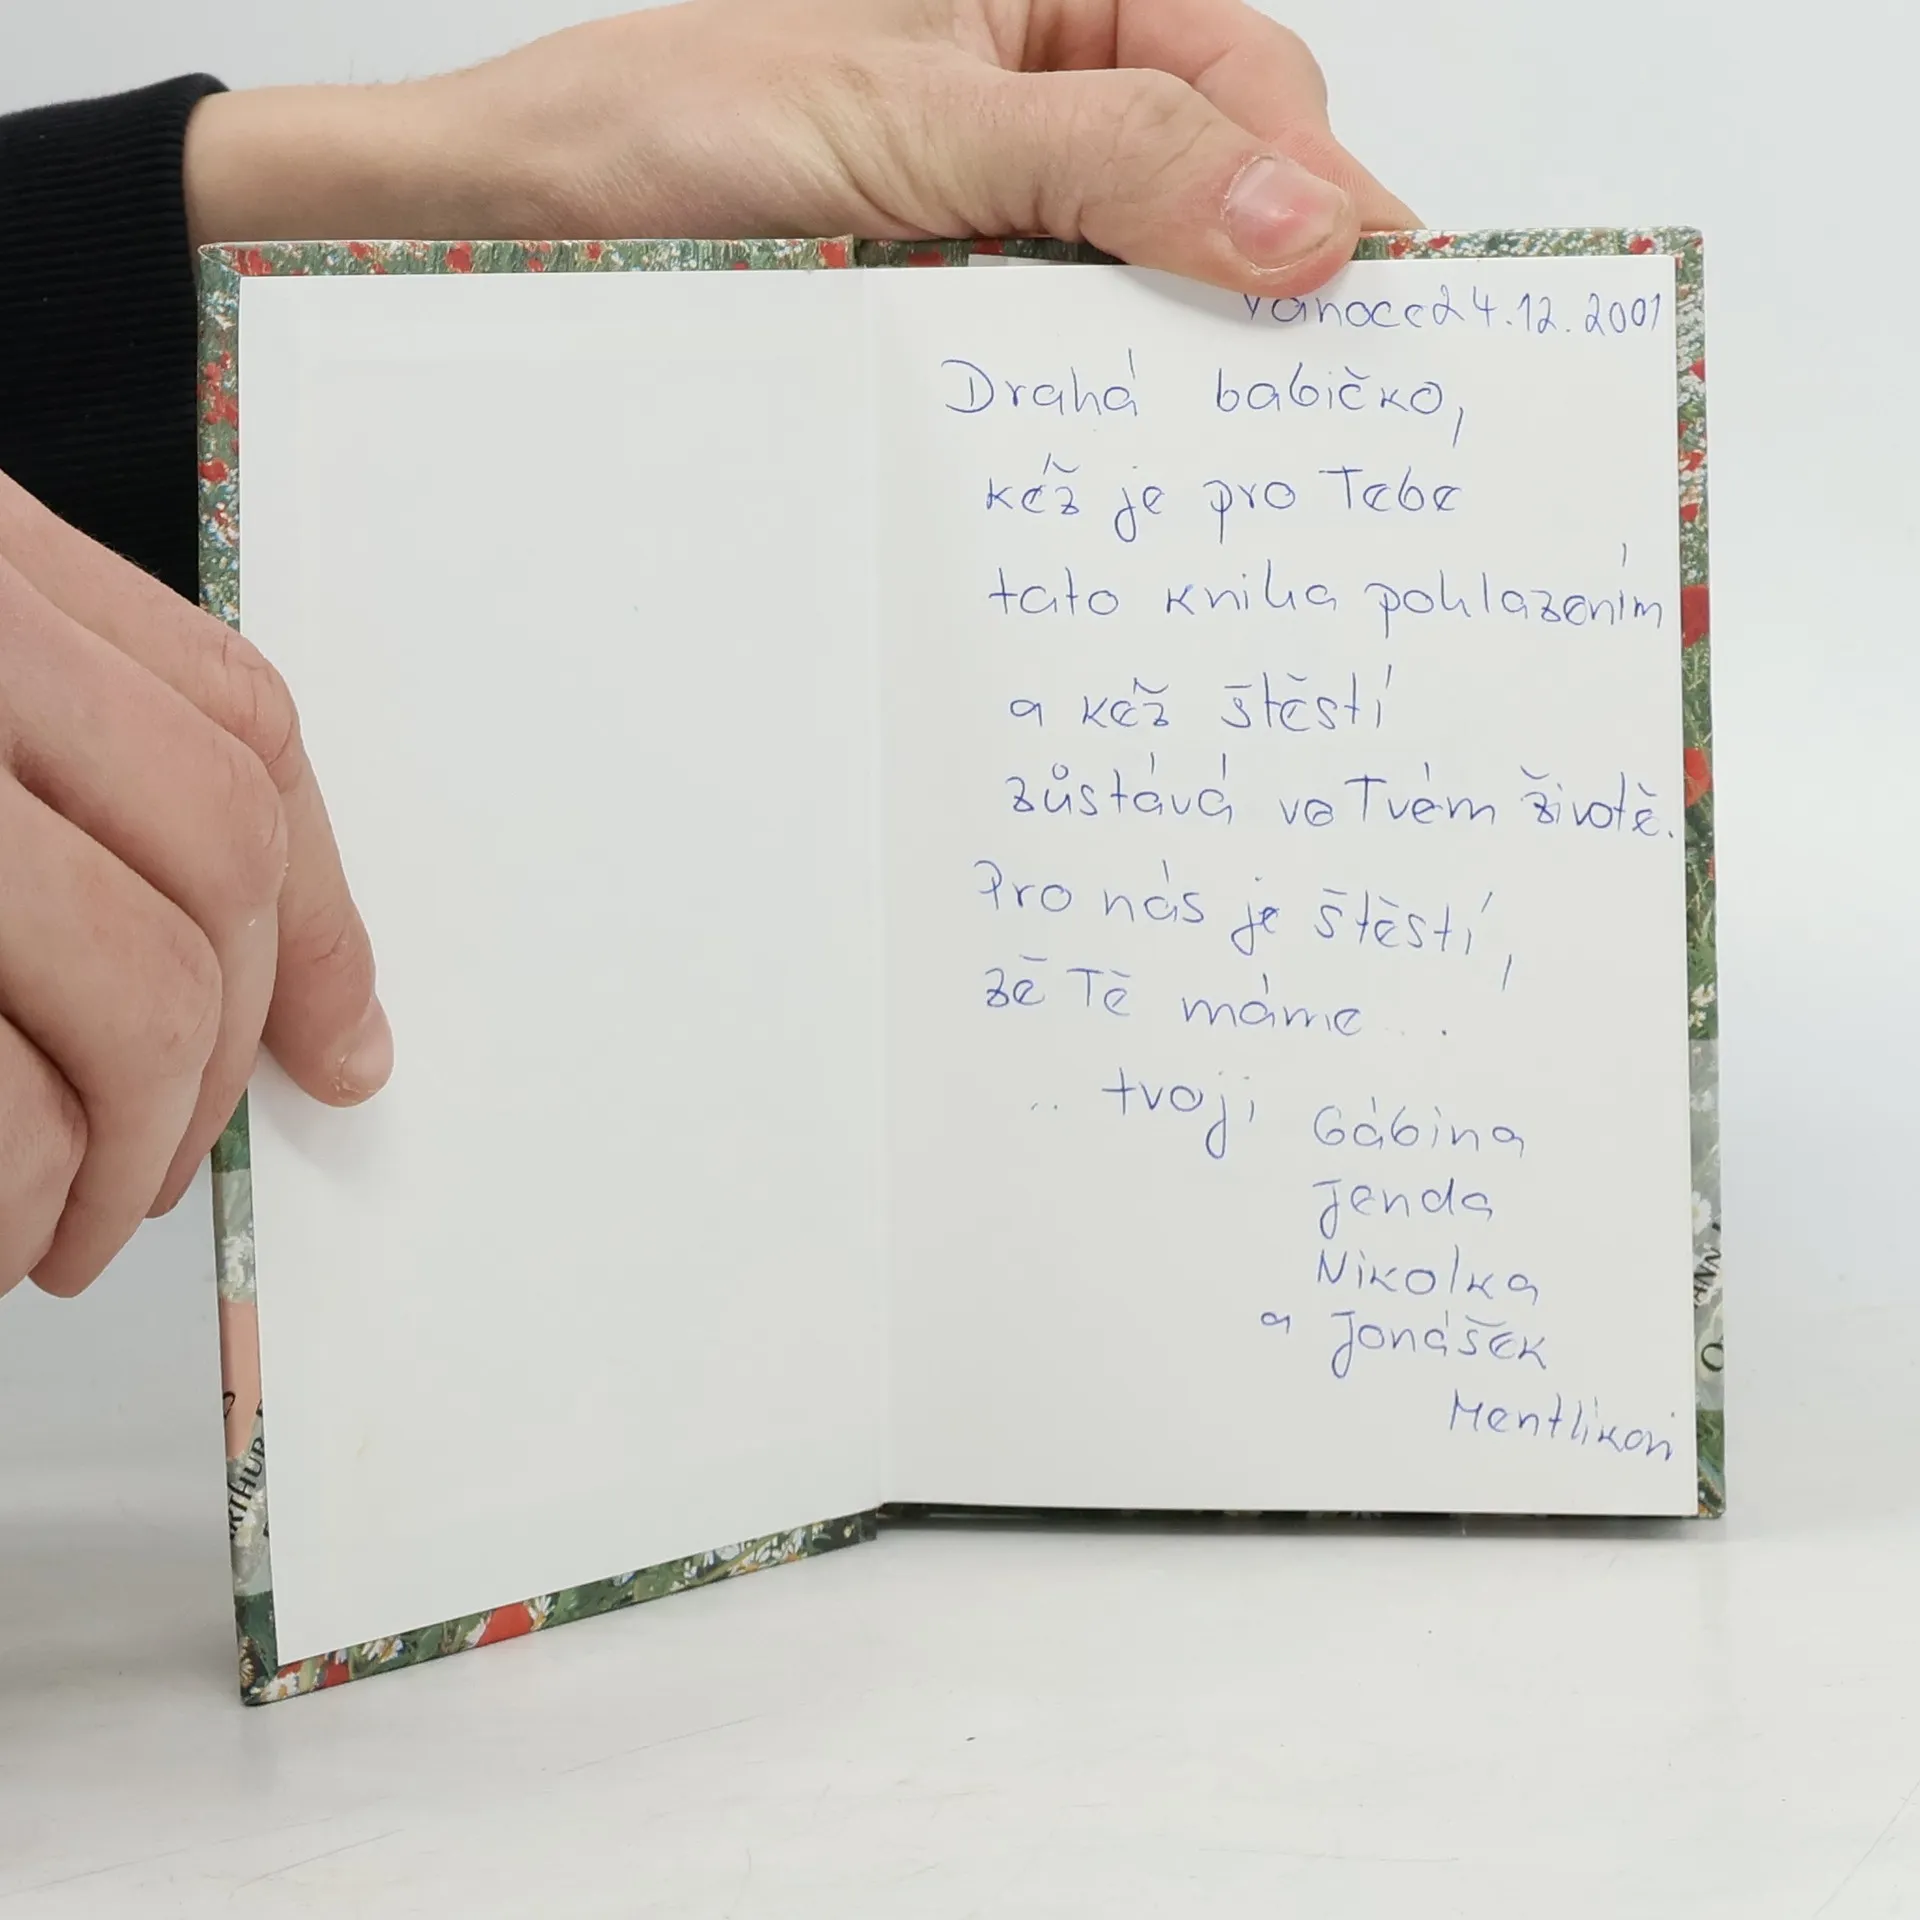 Vánoce 24.12.2001
Drahá babičko,
kéž je pro Tebe
tato kniha pohlazením
a kéž štěstí
zůstává ve Tvém životě.
Pro nás je štěstí,
že Tě máme...
... tvoji Gábina
Jenda
Nikolka
a Jonášek
Mentlíkovi
ARTHUR
ANN